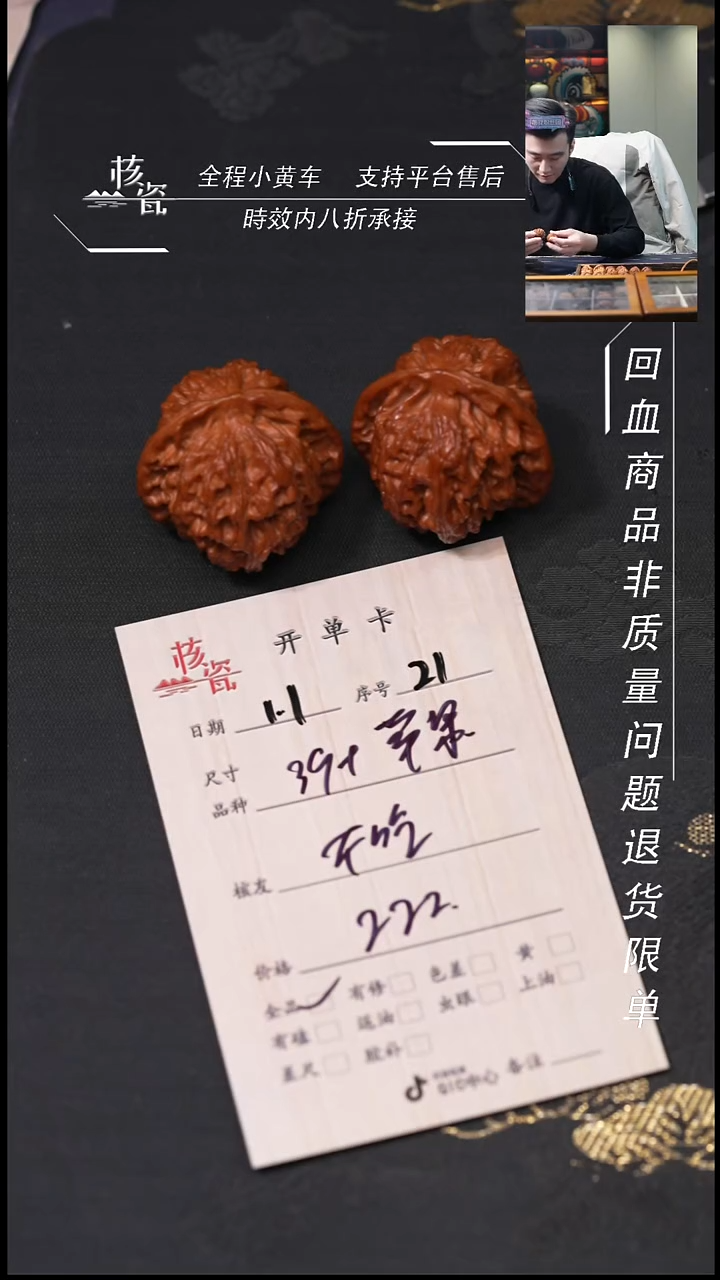 核瓷
全程小黄车 支持平台售后
時效内八折承接
回血商品非质量问题退货限单
核瓷
开单卡
日期 1.1 序号 21
尺寸
品种 39+ 苹果
核友
价格 222.
全品 有修 色差 黄
有磕 走油 虫眼 上油
差尺 胶补
QIC中心 备注